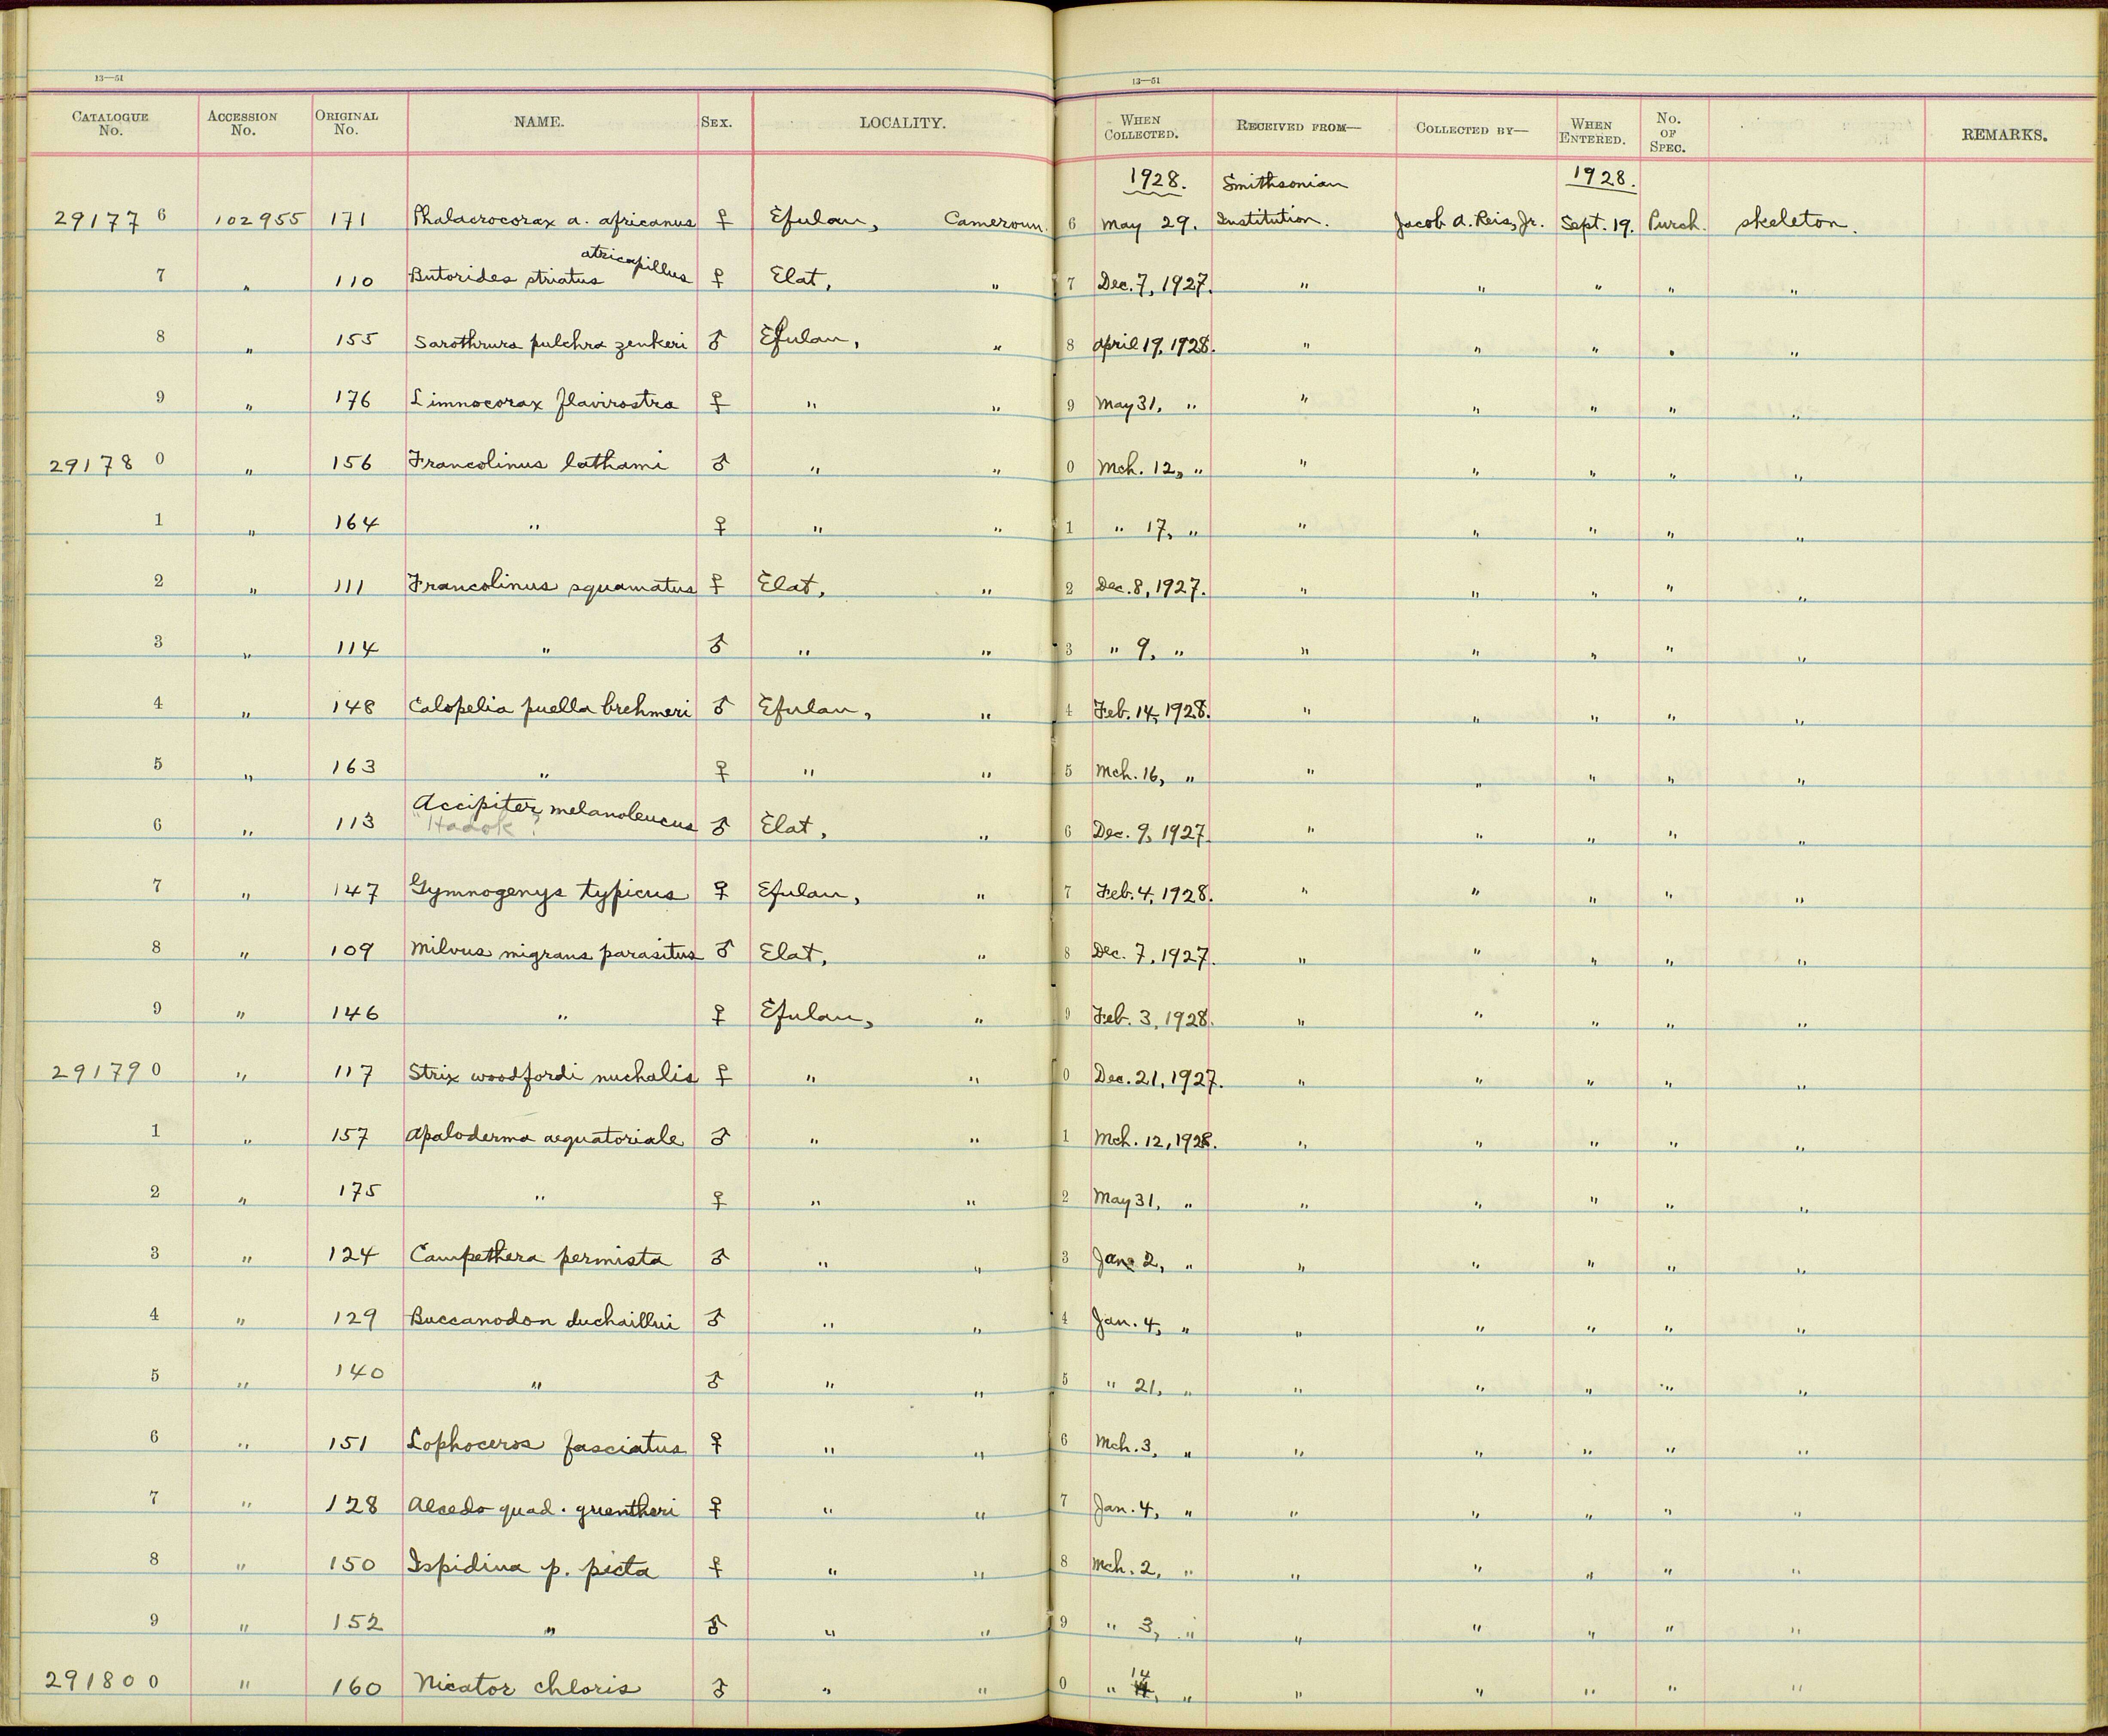 13—51
13—51
CATALOGUE No. ACCESSION No. ORIGINAL No. NAME. SEX. LOCALITY. WHEN COLLECTED. RECEIVED FROM— COLLECTED BY— WHEN ENTERED. No. OF SPEC. REMARKS.
1928. Smithsonian 1928.
29177 6 102955 171 Phalacrocorax a. africanus ♀ Efulan, Cameroun. 6 May 29. Institution. Jacob A. Reis, Jr. Sept. 19. Purch. skeleton.
atricapillus
7 " 110 Butorides striatus ♀ Elat, " 7 Dec. 7, 1927. " " " " "
8 " 155 Sarothrura pulchra zenkeri ♂ Efulan, " 8 April 19, 1928. " " " " "
9 " 176 Limnocorax flavirostra ♀ " " 9 May 31, " " " " " "
29178 0 " 156 Francolinus lathami ♂ " " 0 Mch. 12, " " " " " "
1 " 164 " ♀ " " 1 " 17, " " " " " "
2 " 111 Francolinus squamatus ♀ Elat, " 2 Dec. 8, 1927. " " " " "
3 " 114 " ♂ " " 3 " 9, " " " " " "
4 " 148 Calopelia puella brehmeri ♂ Efulan, " 4 Feb. 14, 1928. " " " " "
5 " 163 " ♀ " " 5 Mch. 16, " " " " " "
Accipiter melanoleucus
6 " 113 "Hadok"? ♂ Elat, " 6 Dec. 9, 1927. " " " " "
7 " 147 Gymnogenys typicus ♀ Efulan, " 7 Feb. 4, 1928. " " " " "
8 " 109 Milvus migrans parasitus ♂ Elat, " 8 Dec. 7, 1927. " " " " "
9 " 146 " ♀ Efulan, " 9 Feb. 3, 1928. " " " " "
29179 0 " 117 Strix woodfordi nuchalis ♀ " " 0 Dec. 21, 1927. " " " " "
1 " 157 Apaloderma aequatoriale ♂ " " 1 Mch. 12, 1928. " " " " "
2 " 175 " ♀ " " 2 May 31, " " " " " "
3 " 124 Campethera permista ♂ " " 3 Jan. 2, " " " " " "
4 " 129 Buccanodon duchaillui ♂ " " 4 Jan. 4, " " " " " "
5 " 140 " ♂ " " 5 " 21, " " " " " "
6 " 151 Lophoceros fasciatus ♀ " " 6 Mch. 3, " " " " " "
7 " 128 Alcedo quad. guentheri ♀ " " 7 Jan. 4, " " " " " "
8 " 150 Ispidina p. picta ♀ " " 8 Mch. 2, " " " " " "
9 " 152 " ♂ " " 9 " 3, " " " " " "
29180 0 " 160 Nicator chloris ♂ " " 0 " 14, " " " " " "